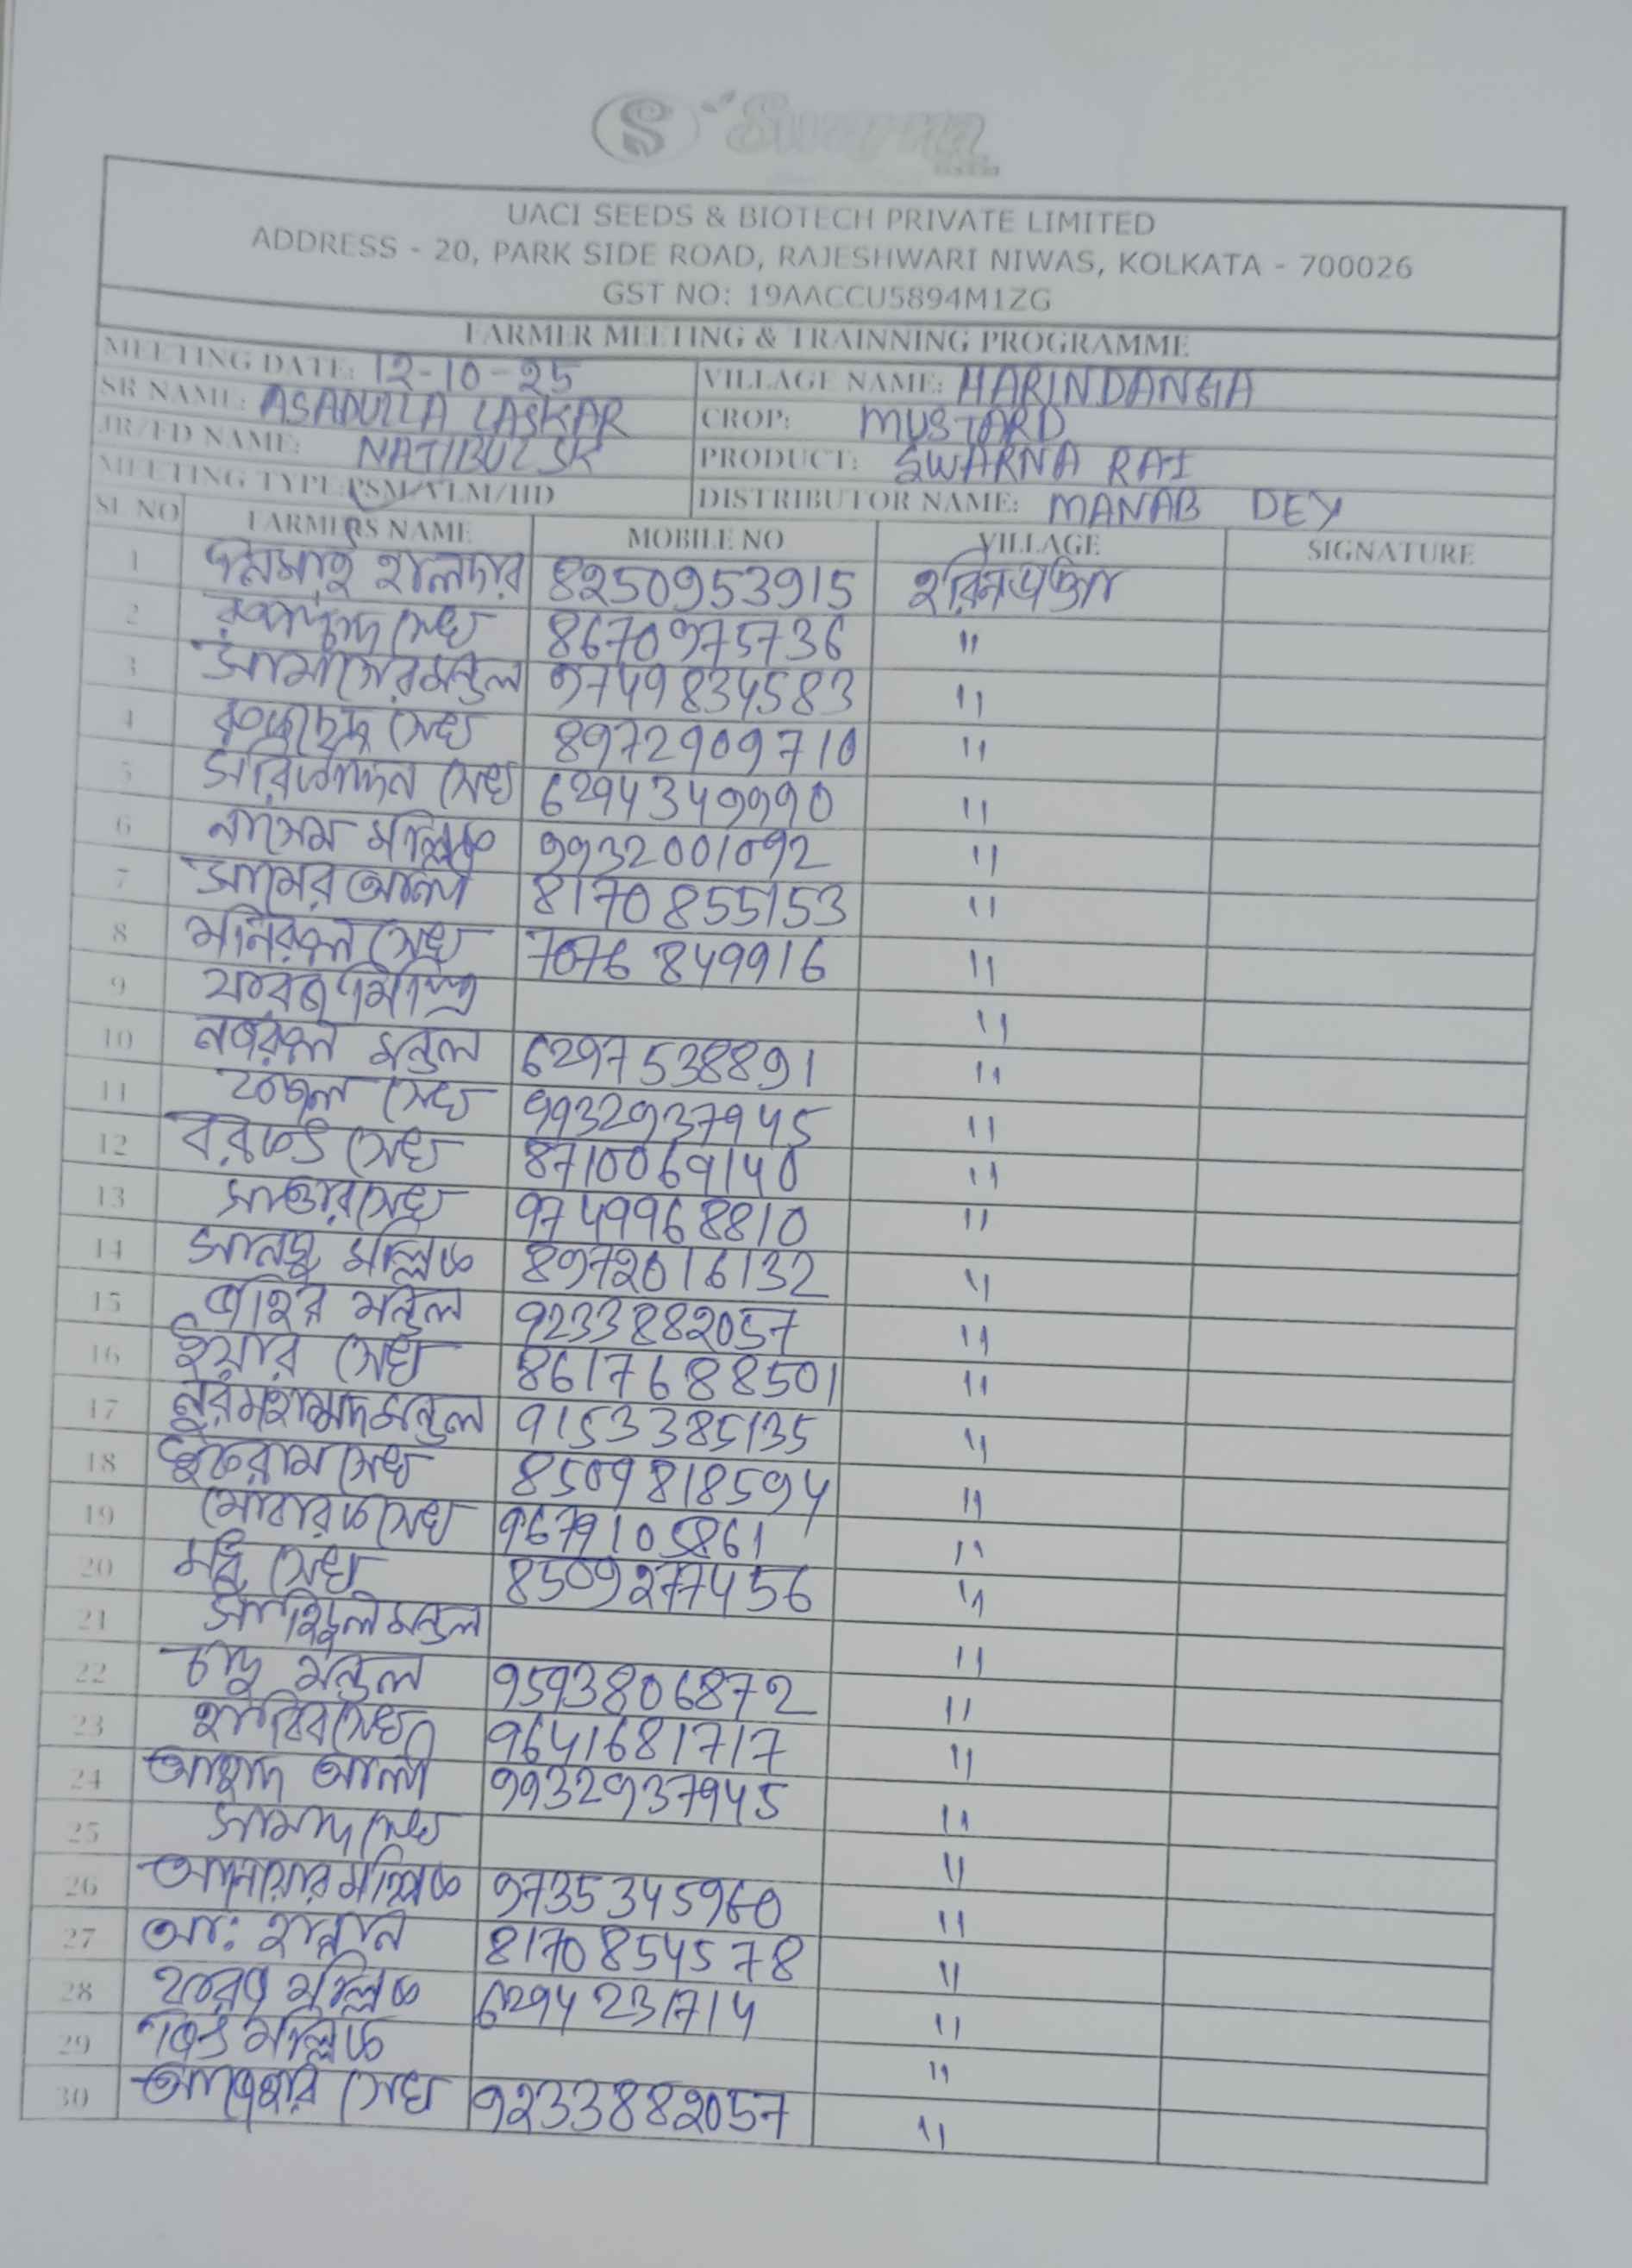 S Swarna
UACI SEEDS & BIOTECH PRIVATE LIMITED
ADDRESS - 20, PARK SIDE ROAD, RAJESHWARI NIWAS, KOLKATA - 700026
GST NO: 19AACCU5894M1ZG
FARMER MEETING & TRAINNING PROGRAMME
MEETING DATE: 12-10-25 VILLAGE NAME: HARINDANGA
SR NAME: ASADULLA LASKAR CROP: MUSTARD
JR/FD NAME: NATIBUL SK PRODUCT: SWARNA RAI
MEETING TYPE: PSM/VLM/HD DISTRIBUTOR NAME: MANAB DEY
SL NO FARMERS NAME MOBILE NO VILLAGE SIGNATURE
1 হালদার 8250953915
2 সেখ 8670975736 "
3 মন্ডল 9749834583 "
4 সেখ 8972909710 "
5 সেখ 6294349990 "
6 নাসেম মল্লিক 9932001092 "
7 সামের আলী 8170855153 "
8 মনিরুল সেখ 7076849916 "
9 "
10 নজরুল মন্ডল 6297538891 "
11 ফজল সেখ 9932937945 "
12 সেখ 8710069140 "
13 সাত্তার সেখ 9749968810 "
14 মল্লিক 8972016132 "
15 জহির মন্ডল 9233882057 "
16 ইয়ার সেখ 8617688501 "
17 নুরমহাম্মদ মন্ডল 9153385135 "
18 সেখ 8509818594 "
19 মোবারক সেখ 9679105861 "
20 সেখ 8509277456 "
21 সাহিদুল মন্ডল "
22 মন্ডল 9593806872 "
23 হাবিব সেখ 9641681717 "
24 আহাদ আলী 9932937945 "
25 সামাদ সেখ "
26 আনোয়ার মল্লিক 9735345960 "
27 আঃ হান্নান 8170854578 "
28 মল্লিক 6294231714 "
29 মল্লিক "
30 সেখ 9233882057 "